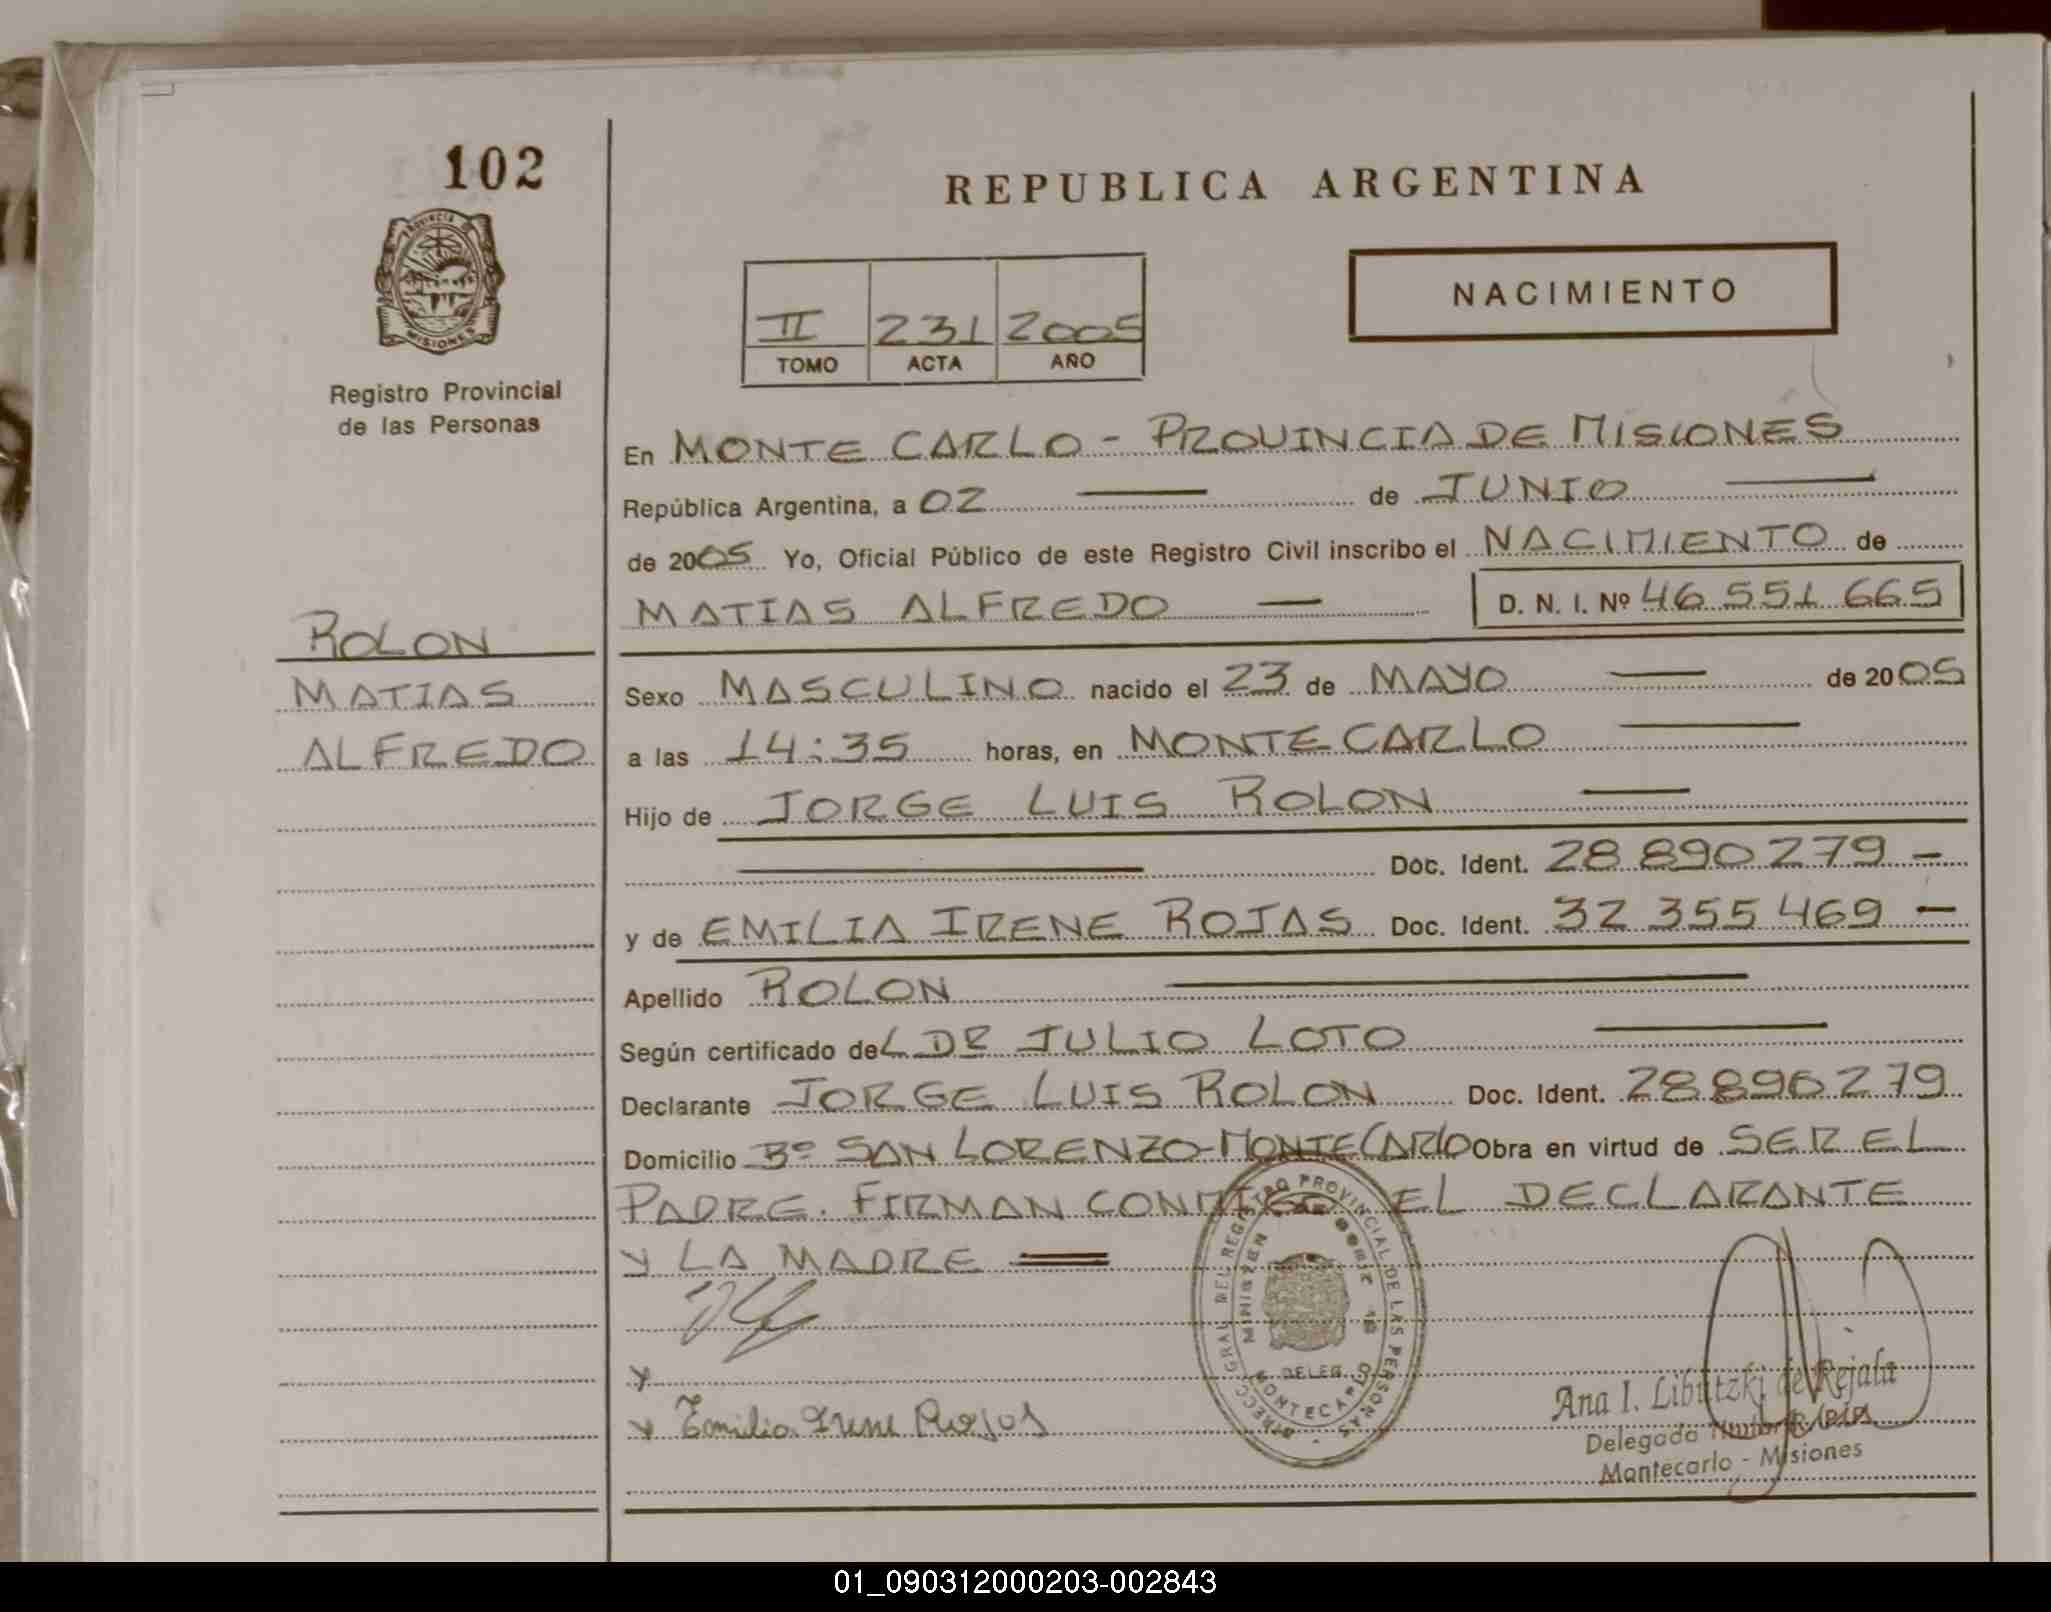 102
REPUBLICA ARGENTINA
PROVINCIA
MISIONES
Registro Provincial
de las Personas
II 231 2005
TOMO ACTA AÑO
NACIMIENTO
En MONTE CARLO - PROVINCIA DE MISIONES
República Argentina, a 02 — de JUNIO —
de 2005 Yo, Oficial Público de este Registro Civil inscribo el NACIMIENTO de
MATIAS ALFREDO — D. N. I. Nº 46 551 665
ROLON
MATIAS
ALFREDO
Sexo MASCULINO nacido el 23 de MAYO — de 2005
a las 14:35 horas, en MONTECARLO —
Hijo de JORGE LUIS ROLON —
— Doc. Ident. 28 890 279 -
y de EMILIA IRENE ROJAS Doc. Ident. 32 355 469 -
Apellido ROLON —
Según certificado del Dr JULIO LOTO —
Declarante JORGE LUIS ROLON Doc. Ident. 28 890 279
Domicilio Bº SAN LORENZO-MONTECARLO Obra en virtud de SER EL
PADRE. FIRMAN CONMIGO EL DECLARANTE
Y LA MADRE =
y
y Emilia Irene Rojas
DIRECC. GRAL. DEL REGISTRO PROVINCIAL DE LAS PERSONAS
DELEG.
MONTECARLO
Ana I. Libutzki de Rejala
Delegada Titular R.P.P.
Montecarlo - Misiones
01_090312000203-002843